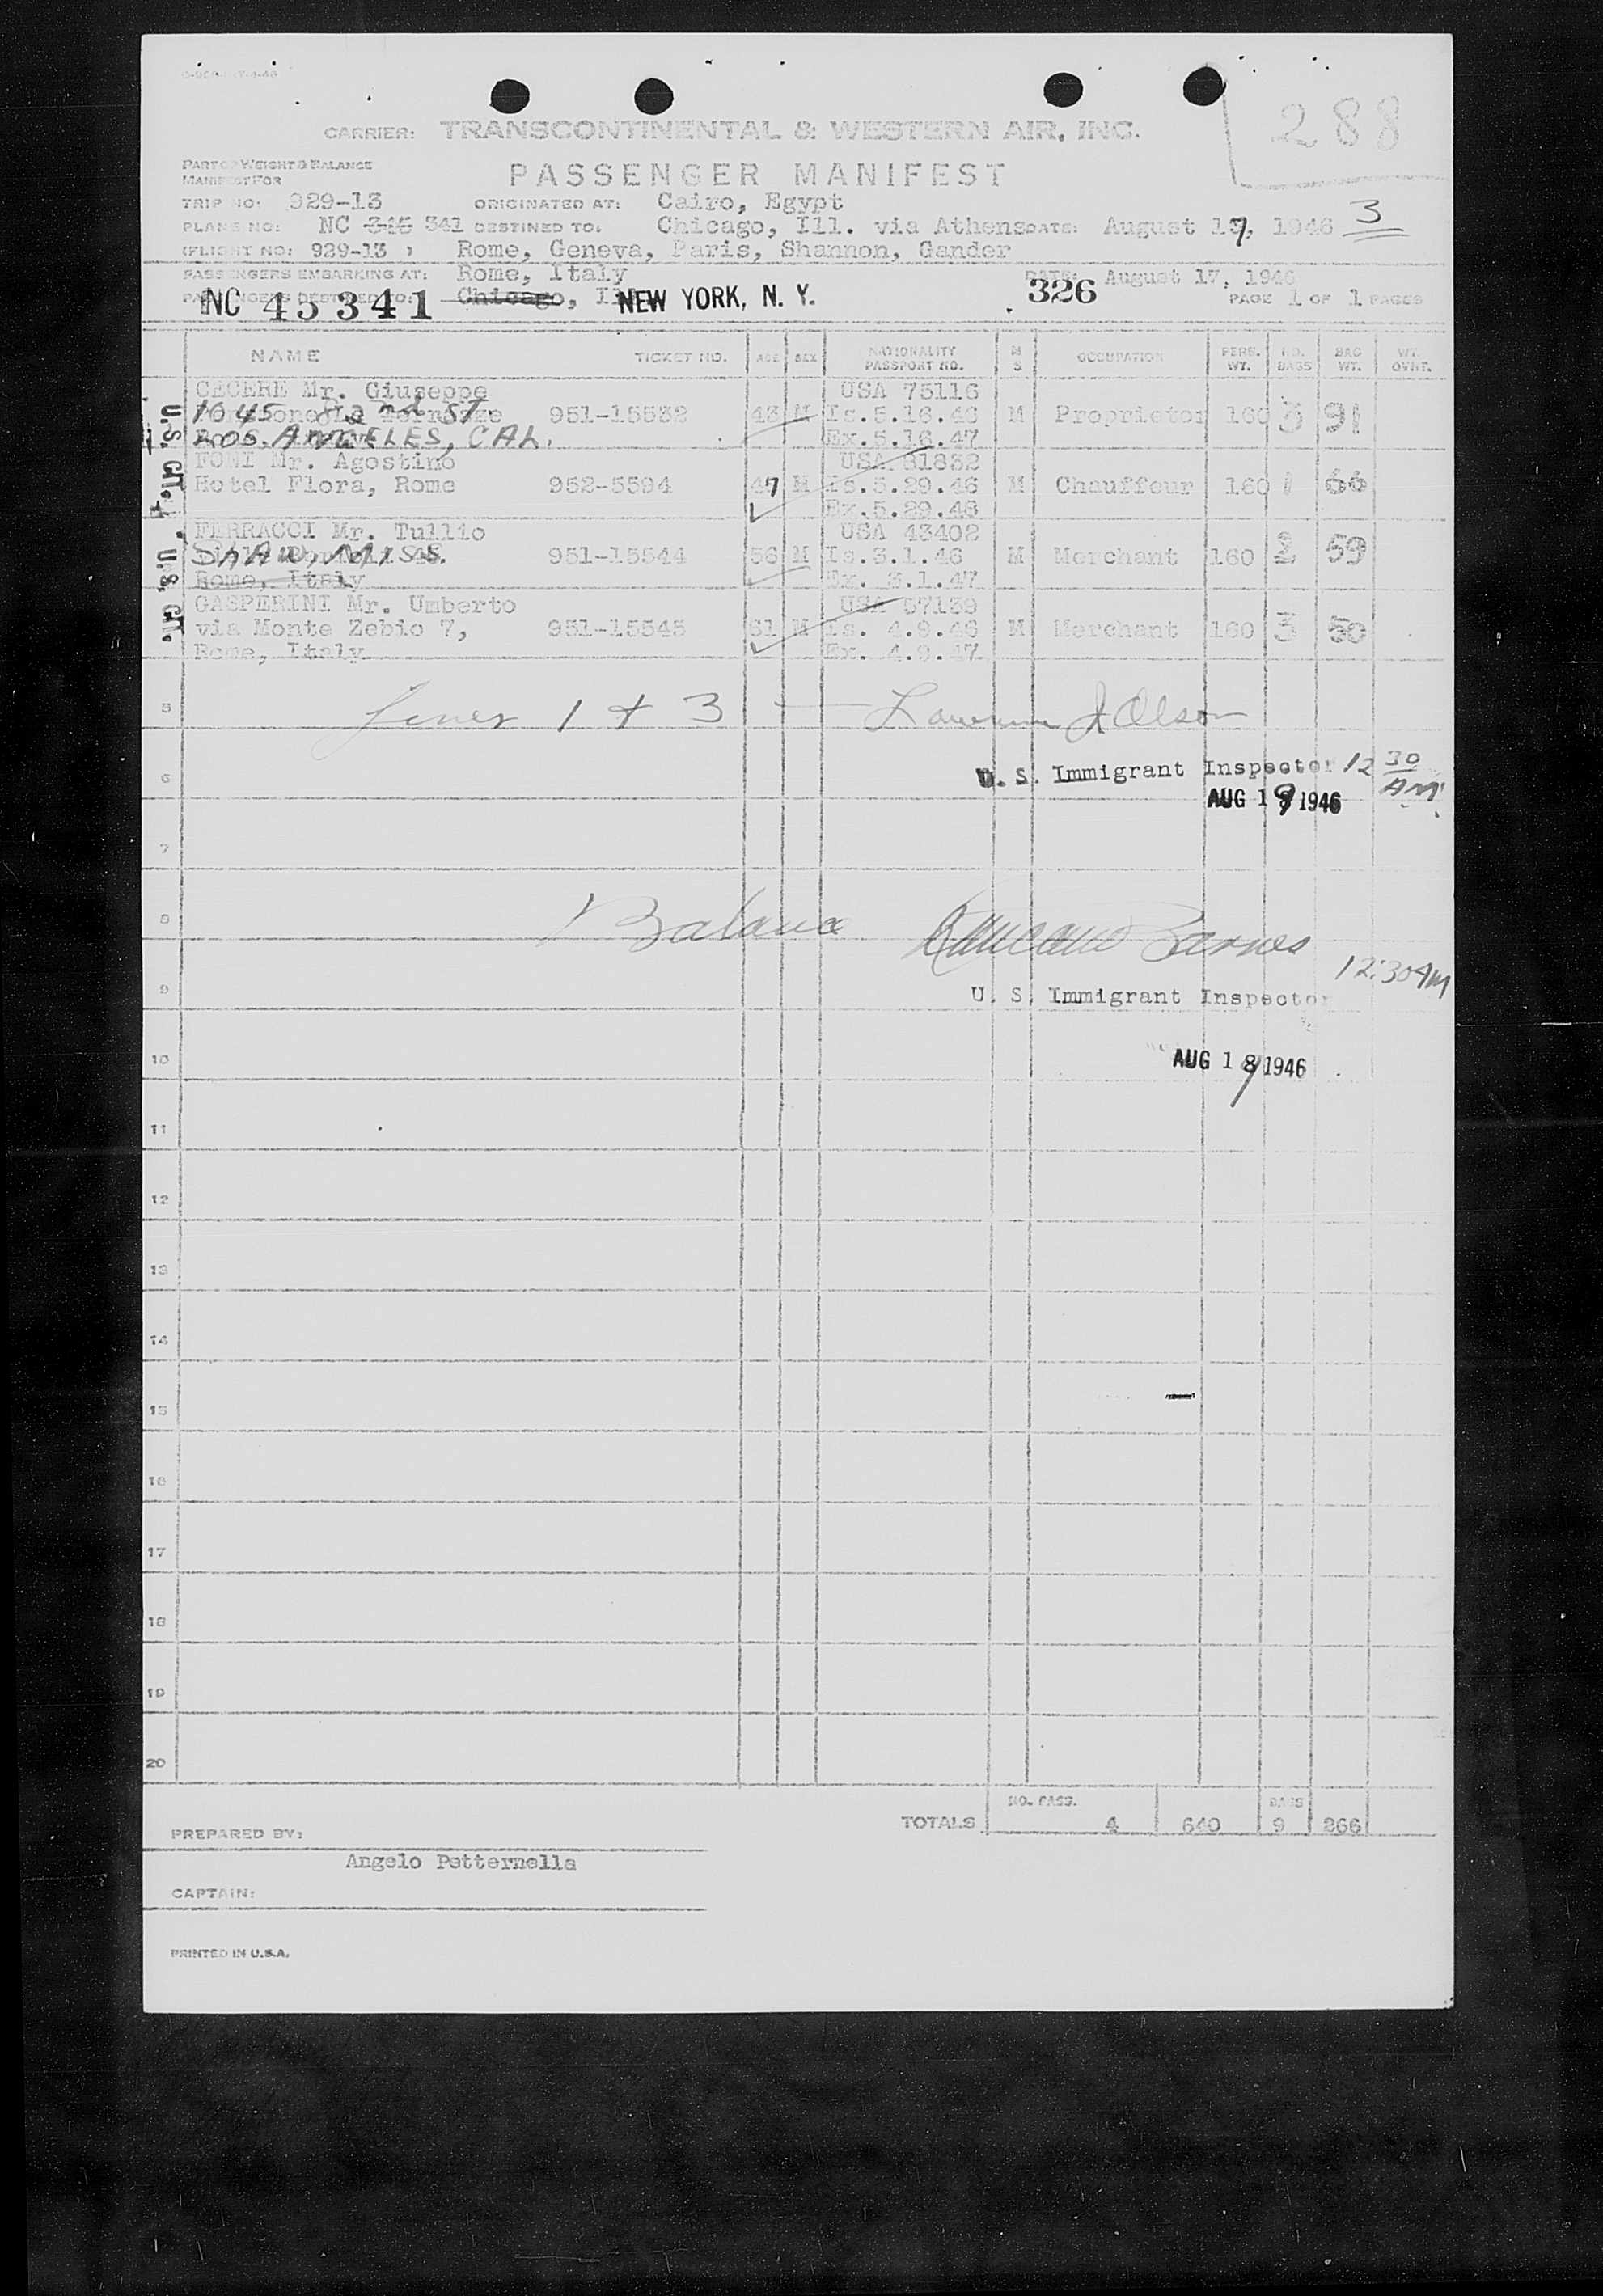 288
CARRIER: TRANSCONTINENTAL & WESTERN AIR, INC.
PART OF WEIGHT & BALANCE
MANIFEST FOR
PASSENGER MANIFEST
TRIP NO: 929-13 ORIGINATED AT: Cairo, Egypt
PLANE NO: NC 345 341 DESTINED TO: Chicago, Ill. via Athens DATE: August 17, 1946 3
(FLIGHT NO: 929-13 ) Rome, Geneva, Paris, Shannon, Gander
PASSENGERS EMBARKING AT: Rome, Italy DATE: August 17, 1946
PASSENGERS DESTINED TO: Chicago, Ill. NEW YORK, N. Y. 326 PAGE 1 OF 1 PAGES
NC 45341
NAME TICKET NO. AGE SEX NATIONALITY PASSPORT NO. M S OCCUPATION PERS. WT. NO. BAGS BAG WT. WT. OVHT.
CECERE Mr. Giuseppe USA 75116
1045 ST. 951-15532 43 M Is.5.16.46 M Proprietor 160 3 91
LOS ANGELES, CAL. Ex.5.16.47
U.S. CIT.
FONI Mr. Agostino USA 81832
Hotel Flora, Rome 952-5594 47 M Is.5.29.46 M Chauffeur 160 1 66
Ex.5.29.48
FERRACCI Mr. Tullio USA 43402
SHAW, MISS. 951-15544 56 M Is.3.1.46 M Merchant 160 2 59
Rome, Italy Ex. 3.1.47
U.S. CIT.
GASPERINI Mr. Umberto USA 57139
via Monte Zebio 7, 951-15545 31 M Is. 4.9.46 M Merchant 160 3 50
Rome, Italy Ex. 4.9.47
5 Lines 1 + 3 — Lawrence J Olson
6 U. S. Immigrant Inspector 12 30 AM
AUG 19 1946
7
8 Balance Duncan Barnes
12:30AM
9 U. S. Immigrant Inspector
10 AUG 18 1946
11
12
13
14
15
16
17
18
19
20
TOTALS NO. PASS. 4 640 BAGS 9 266
PREPARED BY:
Angelo Petternella
CAPTAIN:
PRINTED IN U.S.A.